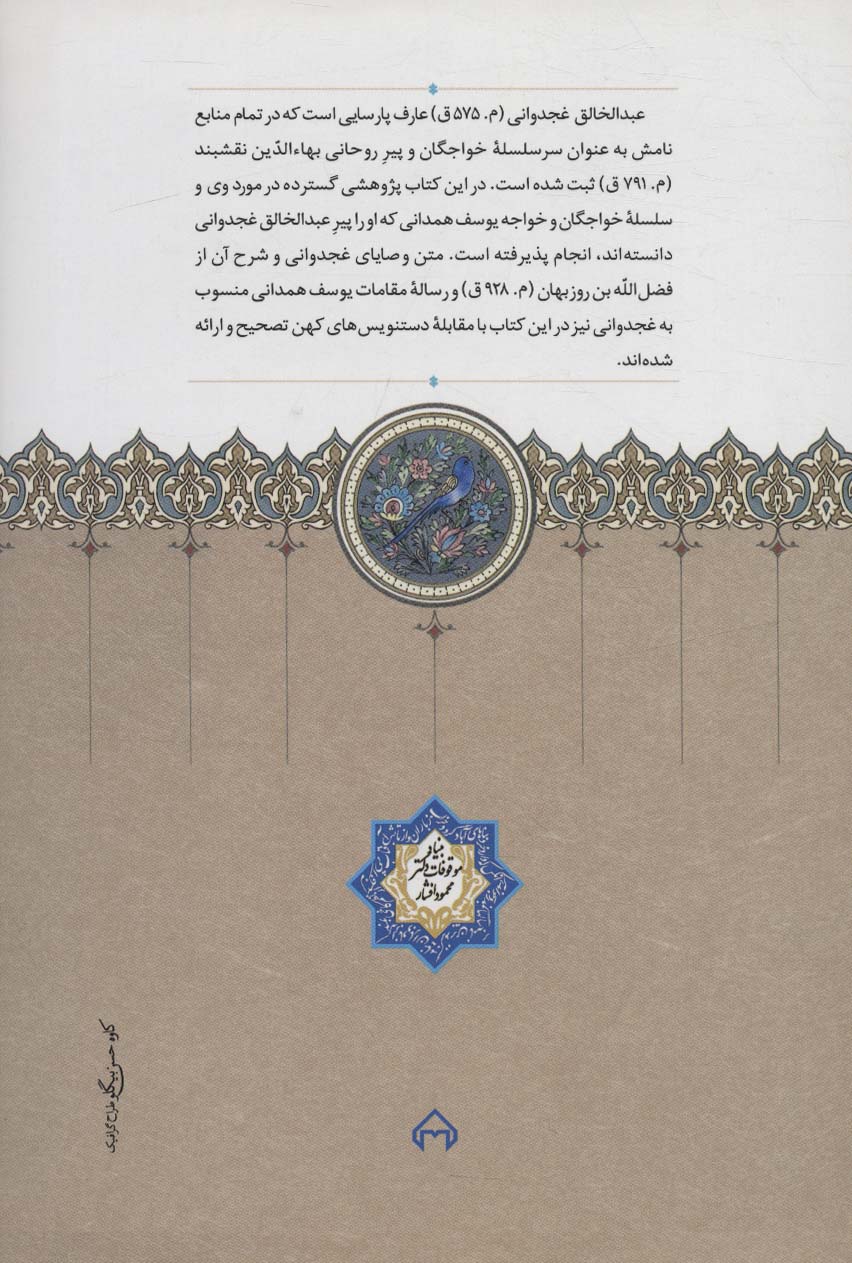 عبدالخالق غجدوانی (م. ۵۷۵ ق) عارف پارسایی است که در تمام منابع
نامش به عنوان سرسلسلهٔ خواجگان و پیرِ روحانی بهاءالدّین نقشبند
(م. ۷۹۱ ق) ثبت شده است. در این کتاب پژوهشی گسترده در مورد وی و
سلسلهٔ خواجگان و خواجه یوسف همدانی که او را پیرِ عبدالخالق غجدوانی
دانسته‌اند، انجام پذیرفته است. متن وصایای غجدوانی و شرح آن از
فضل‌اللّه بن روزبهان (م. ۹۲۸ ق) و رسالهٔ مقامات یوسف همدانی منسوب
به غجدوانی نیز در این کتاب با مقابلهٔ دستنویس‌های کهن تصحیح و ارائه
شده‌اند.
بنیاد
موقوفات دکتر
محمود افشار
کاوه حسن بیگلو طراح گرافیک